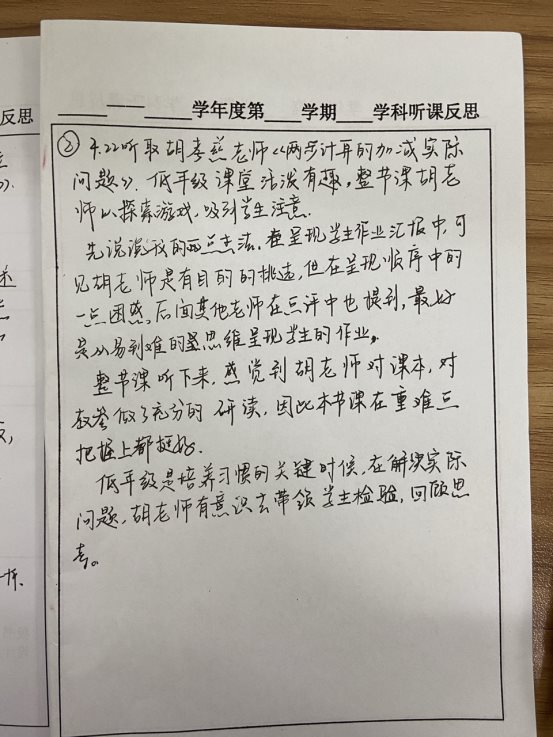 反思
____——____学年度第____学期____学科听课反思
② 4.22听取胡孝慈老师《两步计算的加减实际
问题》. 低年级课堂活泼有趣，整节课胡老
师以探索游戏.吸引学生注意.
先说说我的两点想法. 在呈现学生作业汇报中，可
见胡老师是有目的的挑选，但在呈现顺序中的
一点困惑，后面其他老师在点评中也提到，最好
是从易到难的思维呈现学生的作业。
整节课听下来，感觉到胡老师对课本，对
教参做了充分的研读，因此本节课在重难点
把握上都挺好.
低年级是培养习惯的关键时候，在解决实际
问题，胡老师有意识去带领学生检验，回顾思
考。